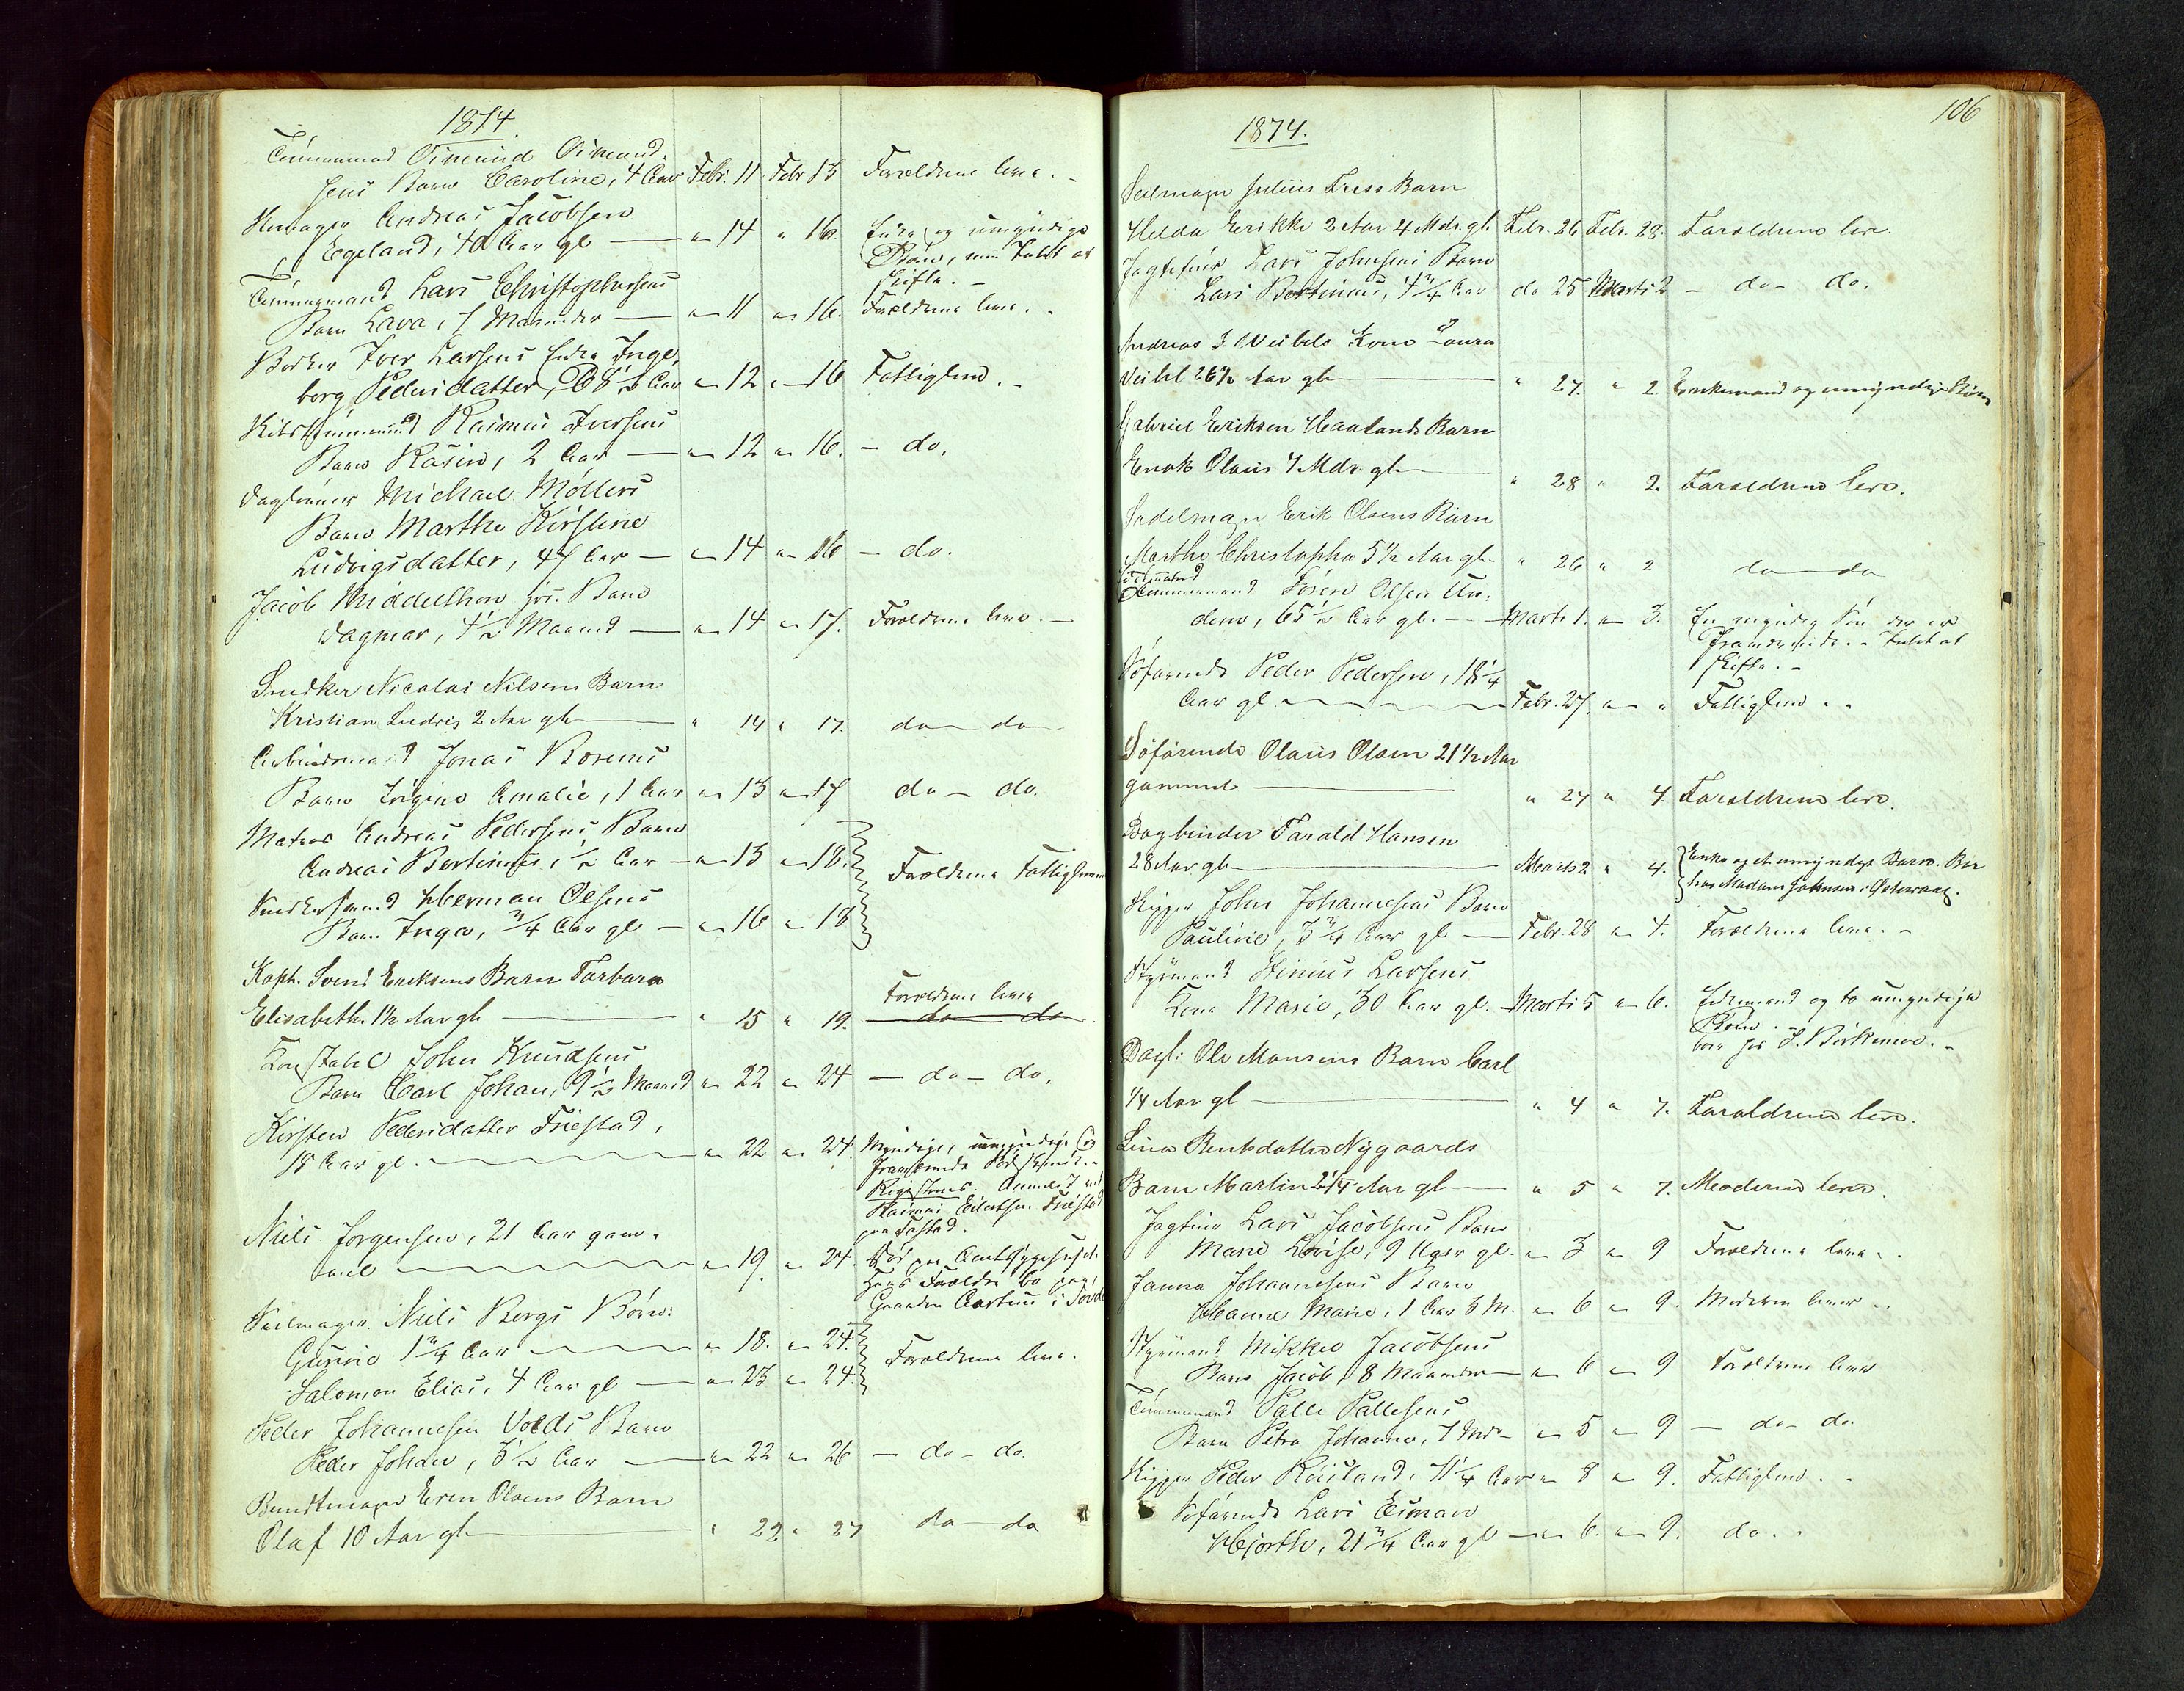 1874
Tømmermand Osmund Osmund-
sens Barn Caroline, 4 Aar Febr. 11 Febr 13 Forældrene leve. -
Andreas Jacobsen
Egeland, 40 Aar gl — " 14 " 16. Enke og umyndige
Børn, intet at
skifte. -
Tømmermand Lars Christophersens
Barn Lava, 7 Maaneder — " 11 " 16. Forældrene leve. -
Bødker Iver Larsens Enke Inge-
borg Pedersdatter, 68½ Aar " 12 " 16 Fattiglem. -
Rasmus Iversens
Barn Rasine, 2 Aar — " 12 " 16. - do.
Daglønner Michael Møllers
Barn Marthe Kirstine
Ludvigsdatter, 47 Aar — " 14 " 16 - do.
Jacob Middelthon jun. Barn
Dagmar, 4½ Maaned — " 14 " 17. Forældrene leve. -
Snedker Nicolai Nilsens Barn
Kristian Ludvig 2 Aar gl — " 14 " 17. do — do
Arbeidsmand Jonas Rosenes
Barn Amalie, 1 Aar " 13 " 17 do - do.
Matros Andreas Pedersens Barn
Andreas Bertinius, ½ Aar — " 13 " 18.
Forældrene Fattiglemmer
Snedkersvend Herman Olsens
Barn Inga, ¾ Aar gl — " 16 " 18
Kapt. Svend Eriksens Barn Barbara
Elisabeth. 1½ Aar gl — " 15 " 19. Forældrene leve
do do
Konstabel John Knudsens
Barn Carl Johan, 9½ Maaned " 22 " 24 - do - do.
Kirsten Pedersdatter Friestad,
18 Aar gl. — " 22 " 24. Myndige, umyndige og
fraværende Sødskende. -
Registreres. Anmeldt ved
Rasmus Eilertsen Friestad
paa Tastad.
Niels Jørgensen, 21 Aar gam-
mel — " 19 " 24. Død paa Amtssygehuset.
Hans Forældre bo paa
Gaarden i
Seilmager Niels Bergs Børn:
Gunvie 1¾ Aar — " 18. " 24.
Forældrene leve.
Salomon Elias, 4 Aar gl — " 23 " 24.
Peder Johannesen Volds Barn
Peder Johan, 3½ Aar — " 22 " 26 - do - do.
Bundtmager Even Olsens Barn
Olaf 10 Aar gl — " 22 " 27 do — do
106
1874.
Seilmager Julius Tress Barn
Helda Erikke 2 Aar 4 Mdr. gl Febr. 26 Febr. 28. Forældrene leve.
Lars Johnsens Barn
Lars Bertinius, 4¾ Aar do 25 Marts 2 - do - do.
Andreas J. Weibels Kone Laura
Weibel 26½ Aar gl — " 27. " 2 Enkemand og umyndige Børn
Gabriel Eriksen Haalands Barn
Enok Olaus 4 Mdr gl — " 28 " 2. Forældrene leve.
Sadelmager Erik Olsens Barn
Marthe Christopha 5½ Aar gl. " 26 " 2 do — do
Tømmermand Søren Olsen Un-
dem, 65½ Aar gl. — Marts 1. " 3. En myndig Søn der er
fraværende. - Intet at
skifte. -
Søfarende Peder Pedersen, 18¼
Aar gl — Febr. 27. " " Fattiglem. -
Søfarende Olaus Olsen 21½ Aar
gammel — " 27 " 4. Forældrene leve.
Bogbinder Tarald Hansen
28 Aar gl — Marts 2 " 4. Enke og et umyndigt Barn. Bor
hos Madam Johnsen i Østervaag.
Skipper John Johannesens Barn
Pauline, 3¾ Aar gl — Febr. 28 " 4. Forældrene leve. -
Styrmand Larsens
Kone Marie, 30 Aar gl. Marts 5 " 6. Enkemand og to umyndige
Børn. -
bor hos S. -
Dagl: Ole Monsens Barn Carl
¼ Aar gl — " 4 " 7. Forældrene leve.
Lina Bentsdatter Nygaards
Barn Martin 2¼ Aar gl — " 5 " 7. Moderen lever.
Lars Jacobsens Barn
Marie Lovise, 9 Uger gl. " 3 " 9 Forældrene leve. -
Janna Johannesens Barn
Hanne Marie, 1 Aar 3 M. " 6 " 9. Moderen lever. -
Styrmand Mikkel Jacobsens
Barn Jacob, 8 Maaneder — " 6 " 9 Forældrene leve
Tømmermand Palle Pallesens
Barn Petra Johanne, 7 Mdr — " 5 " 9 - do - do
Skipper Peder Røisland, 71¼ Aar " 8 " 9. Fattiglem. -
Søfarende Lars Eiman
Hjorth, 21¾ Aar gl — " 6. " 9. do. -